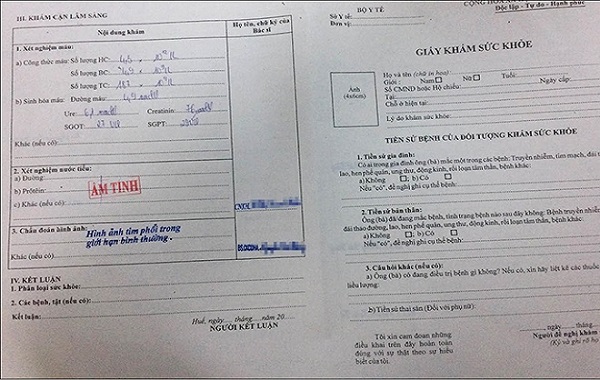 III. KHÁM CẬN LÂM SÀNG
Nội dung khám
Họ tên, chữ ký của Bác sĩ
1. Xét nghiệm máu:
a) Công thức máu: Số lượng HC:
Số lượng BC:
Số lượng TC:
b) Sinh hóa máu: Đường máu:
Ure: Creatinin:
SGOT: SGPT:
Khác (nếu có):
2. Xét nghiệm nước tiểu:
a) Đường:
b) Prôtêin:
ÂM TINH
c) Khác (nếu có):
3. Chẩn đoán hình ảnh:
Hình ảnh tim phổi trong
giới hạn bình thường.
Khác (nếu có):
IV. KẾT LUẬN
1. Phân loại sức khỏe:
2. Các bệnh, tật (nếu có):
Kết luận:
Huế, ngày.... tháng.... năm 20....
NGƯỜI KẾT LUẬN
BỘ Y TẾ
Số Y tế:
Đơn vị:
Độc lập - Tự do - Hạnh phúc
GIẤY KHÁM SỨC KHỎE
Ảnh
(4x6cm)
Họ và tên (chữ in hoa):
Giới: Nam Nữ Tuổi:
Số CMND hoặc Hộ chiếu: Ngày cấp:
Tại:
Chỗ ở hiện tại:
Lý do khám sức khỏe:
TIỀN SỬ BỆNH CỦA ĐỐI TƯỢNG KHÁM SỨC KHỎE
1. Tiền sử gia đình:
Có ai trong gia đình ông (bà) mắc một trong các bệnh: Truyền nhiễm, tim mạch, đái
lao, hen phế quản, ung thư, động kinh, rối loạn tâm thần, bệnh khác:
a) Không b) Có
Nếu "có", đề nghị ghi cụ thể bệnh:
2. Tiền sử bản thân:
Ông (bà) đã/đang mắc bệnh, tình trạng bệnh nào sau đây không: Bệnh truyền nhiễm
đái tháo đường, lao, hen phế quản, ung thư, động kinh, rối loạn tâm thần, bệnh khác:
a) Không b) Có
Nếu "có", đề nghị ghi cụ thể bệnh:
3. Câu hỏi khác (nếu có):
a) Ông (bà) có đang điều trị bệnh gì không? Nếu có, xin hãy liệt kê các thuốc
liều lượng:
b) Tiền sử thai sản (Đối với phụ nữ):
Tôi xin cam đoan những
điều khai trên đây hoàn toàn
đúng với sự thật theo sự hiểu
biết của tôi.
ngày tháng
Người đề nghị khám
(Ký và ghi rõ họ